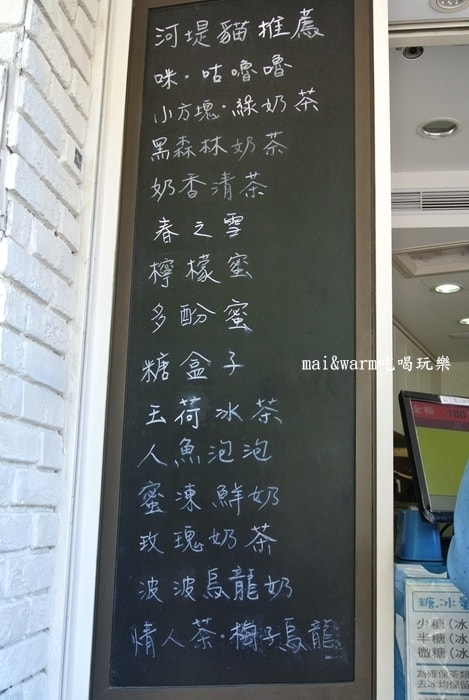 河堤貓推薦
咪·咕嚕嚕
小方塊·綠奶茶
黑森林奶茶
奶香清茶
春之雪
檸檬蜜
多酚蜜
糖盒子
玉荷冰茶
人魚泡泡
蜜凍鮮奶
玫瑰奶茶
波波烏龍奶
情人茶·梅子烏龍
mai&warm吃喝玩樂
金額
糖.冰
少糖(冰
半糖(冰
微糖(冰
為確保茶
去冰均保留